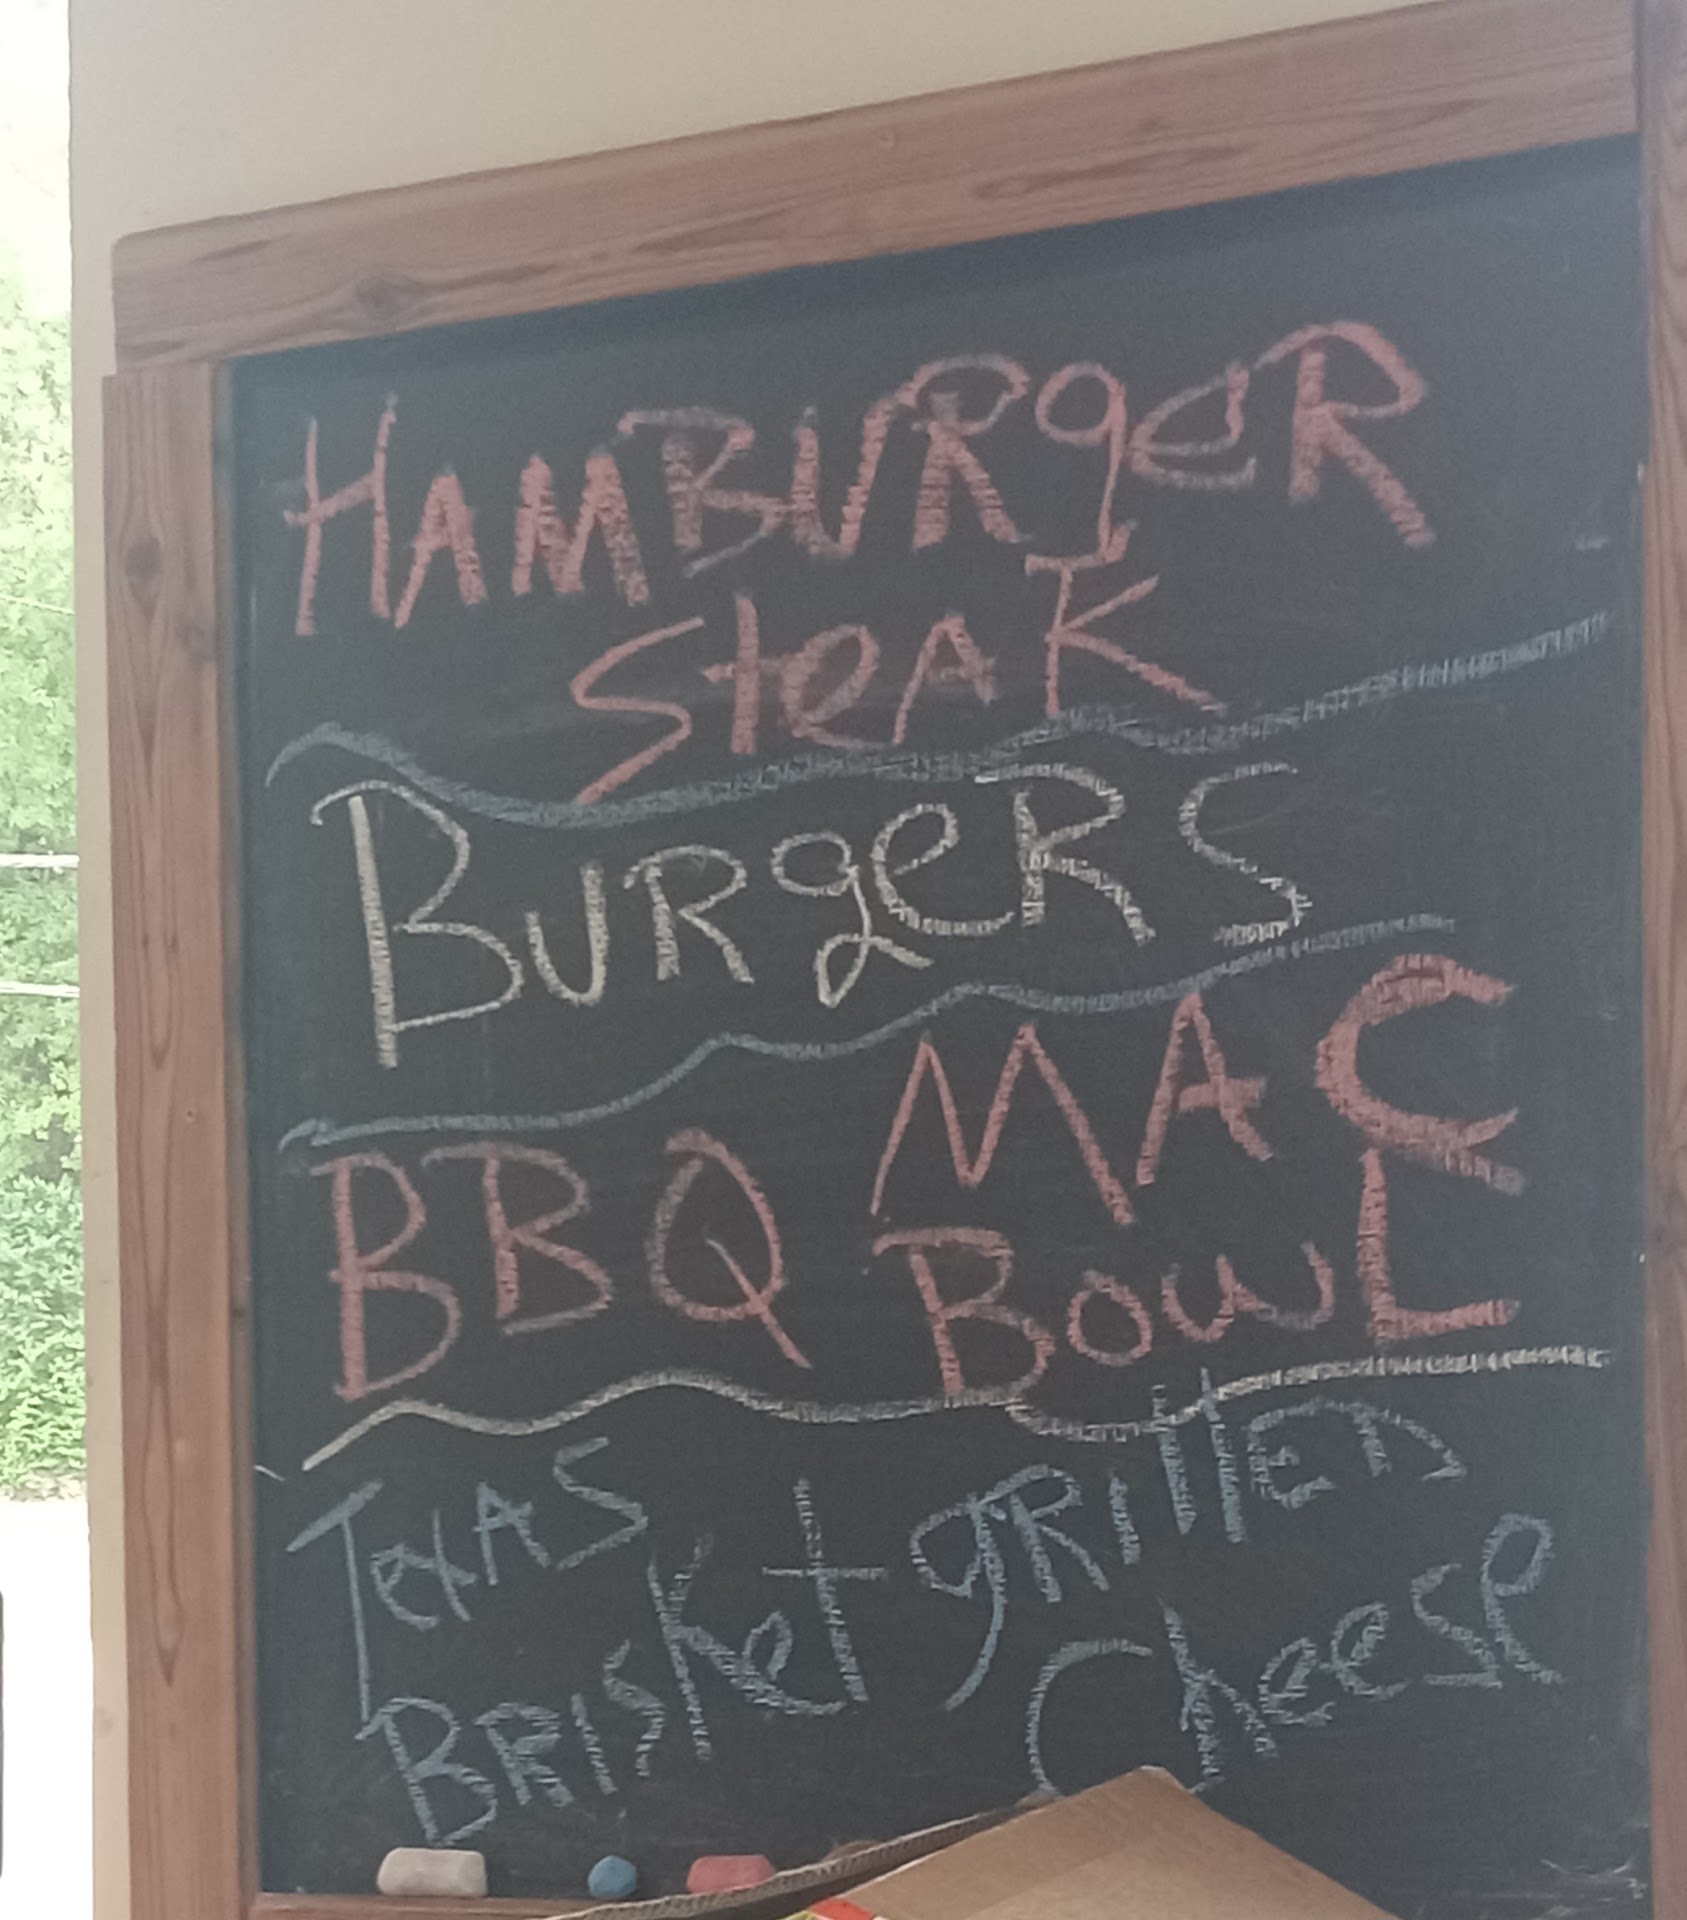 HAMBURgeR
SteAK
BURgeRS
BBQ MAC
BOWL
TexAS gRIlleD
BRISKet Cheese